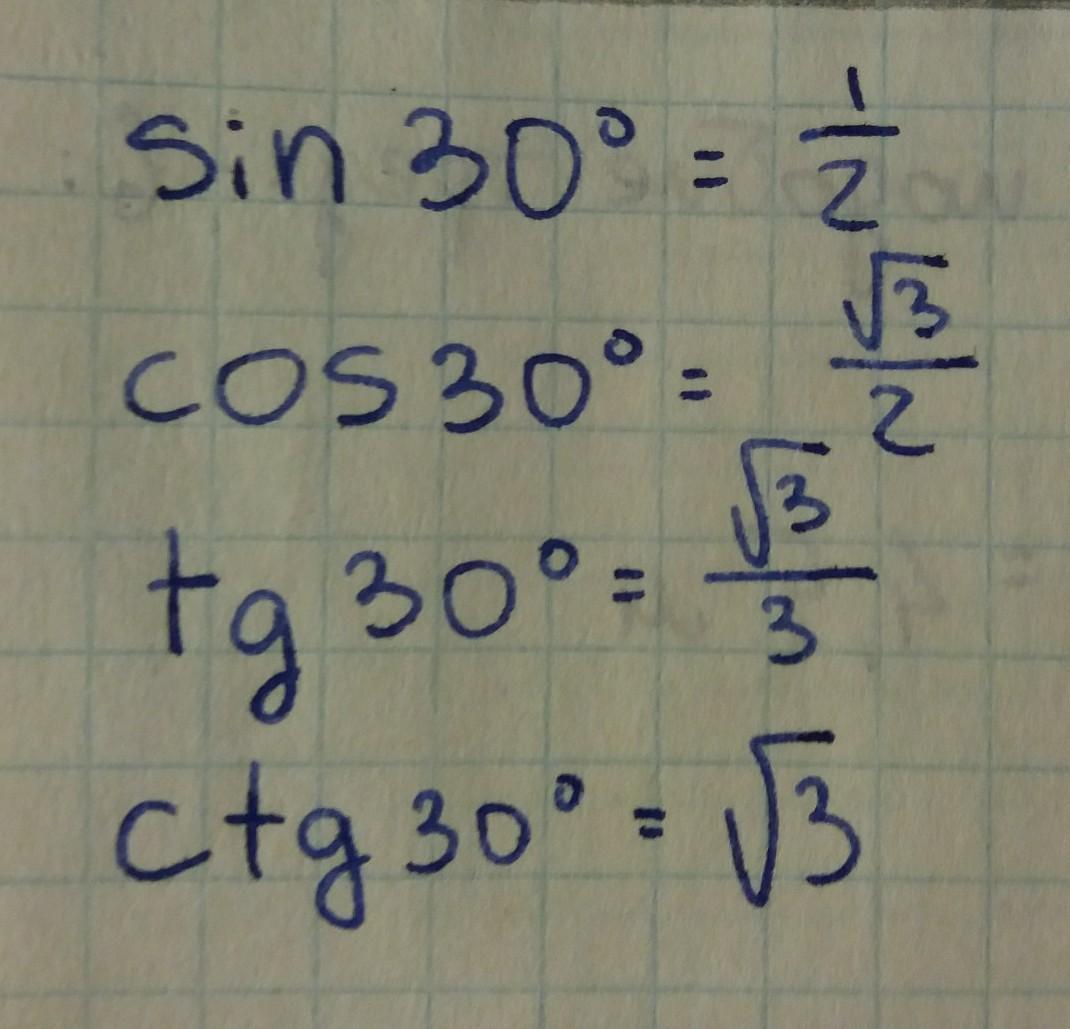 sin 30° = 1/2
cos 30° = √3/2
tg 30° = √3/3
ctg 30° = √3